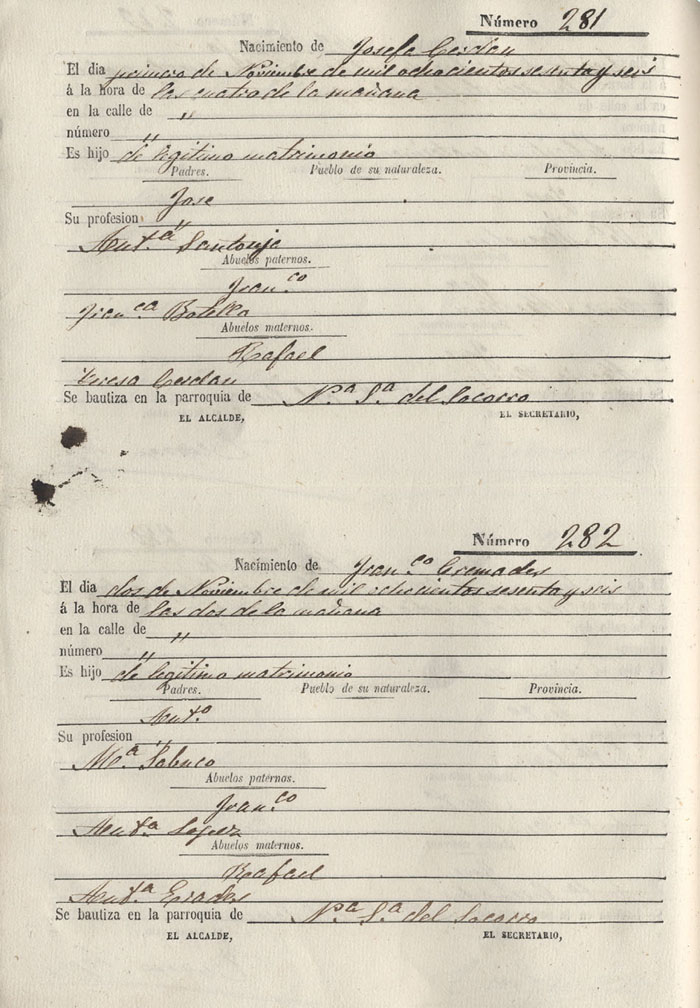 Número 281
Nacimiento de Josefa Cerdan
El dia primero de Noviembre de mil ochocientos sesenta y seis
á la hora de las cuatro de la mañana
en la calle de "
número "
Es hijo de legitimo matrimonio
Padres. Pueblo de su naturaleza. Provincia.
Jose
Su profesion "
Antª Santonja
Abuelos paternos.
Franco
Franca Botella
Abuelos maternos.
Rafael
Teresa Cerdan
Se bautiza en la parroquia de Nª Sª del Socorro
EL ALCALDE, EL SECRETARIO,
Número 282
Nacimiento de Franco Cremades
El dia dos de Noviembre de mil ochocientos sesenta y seis
á la hora de las dos de la mañana
en la calle de "
número "
Es hijo de legitimo matrimonio
Padres. Pueblo de su naturaleza. Provincia.
Antº
Su profesion "
Mª Sabuco
Abuelos paternos.
Franco
Antª Lopez
Abuelos maternos.
Rafael
Antª Erades
Se bautiza en la parroquia de Nª Sª del Socorro
EL ALCALDE, EL SECRETARIO,